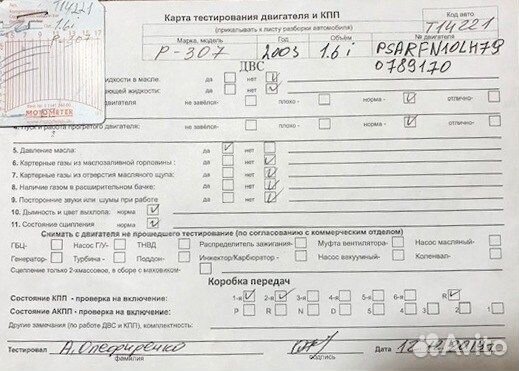 Карта тестирования двигателя и КПП
(прикалывать к листу разборки автомобиля)
Код авто
T14221
Марка, модель
Год
Объём
№ двигателя
P-307
2003
1.6 i
PSARFN10LH79
0789170
T14221
1.6i
MOTOMETER
ДВС
жидкости в масле. да нет
ющей жидкости: да нет
двигателя не завёлся- плохо - норма - отлично-
4. Пуск и работа прогретого двигателя: не завелся- плохо - норма - отлично-
5. Давление масла: да нет
6. Картерные газы из маслозаливной горловины : да нет
7. Картерные газы из отверстия масляного щупа: да нет
8. Наличие газом в расширительном бачке: да нет
9. Посторонние звуки или шумы при работе да нет
10. Дымность и цвет выхлопа: норма
11. Состояние сцепления норма
Снимать с двигателя не прошедшего тестирование (по согласованию с коммерческим отделом)
ГБЦ- Насос Г/У- ТНВД Распределитель зажигания- Муфта вентилятора- Насос масляный-
Генератор- Турбина - Поддон- Инжектор/Карбюратор - Насос вакуумный- Коленвал-
Сцепление только 2-хмассовое, в сборе с маховиком-
Коробка передач
Состояние КПП - проверка на включение: 1-я 2-я 3-я 4-я 5-я 6-я R
Состояние АКПП - проверка на включение: P R N D 5 4 3 2 1
Другие замечания (по работе ДВС и КПП), комплектность:
Тестировал Дата
фамилия подпись
Avito